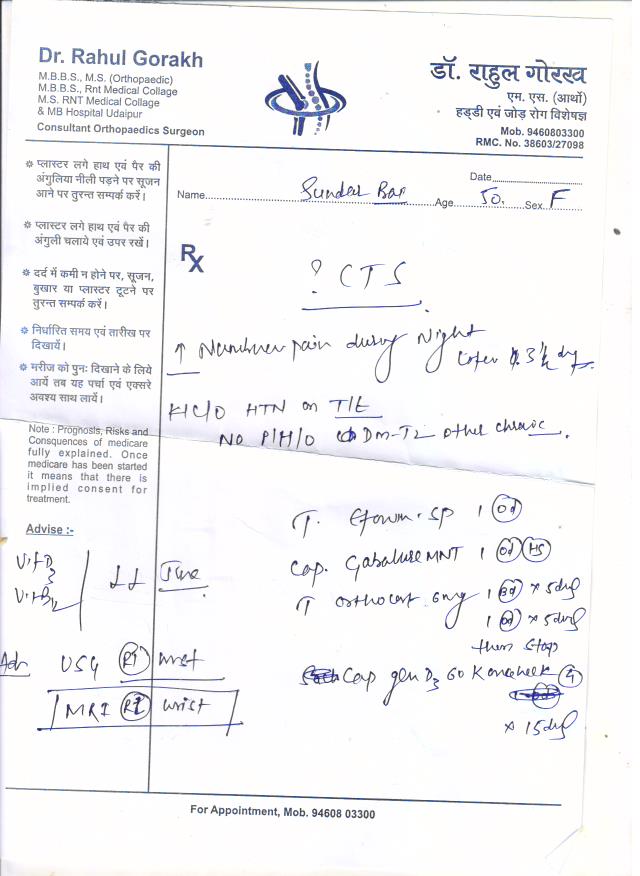 Dr. Rahul Gorakh
M.B.B.S., M.S. (Orthopaedic)
M.B.B.S., Rnt Medical Collage
M.S. RNT Medical Collage
& MB Hospital Udaipur
Consultant Orthopaedics Surgeon
डॉ. राहुल गोरख
एम. एस. (आर्थो)
हड्डी एवं जोड़ रोग विशेषज्ञ
Mob. 9460803300
RMC. No. 38603/27098
Date
Name Sundar Bai Age 50. Sex F
❉ प्लास्टर लगे हाथ एवं पैर की
अंगुलिया नीली पड़ने पर सूजन
आने पर तुरन्त सम्पर्क करें।
❉ प्लास्टर लगे हाथ एवं पैर की
अंगुली चलाये एवं उपर रखें।
❉ दर्द में कमी न होने पर, सूजन,
बुखार या प्लास्टर टूटने पर
तुरन्त सम्पर्क करें।
❉ निर्धारित समय एवं तारीख पर
दिखायें।
❉ मरीज को पुनः दिखाने के लिये
आयें तब यह पर्चा एवं एक्सरे
अवश्य साथ लायें।
Note : Prognosis, Risks and
Consquences of medicare
fully explained. Once
medicare has been started
it means that there is
implied consent for
treatment.
Advise :-
Vit D3
Vit B12
Adv USG RT wrist
MRI RT wrist
Rx
? CTS
↑ pain during Night
K/C/O HTN on T/t
No P/H/O DM-T2 other chronic.
T. SP 1 Od
Cap. NT 1 Od HS
T 6mg 1 Bd x 5day
1 Od x 5day
then stop
Cap gen D3 60 K
x 15day
For Appointment, Mob. 94608 03300